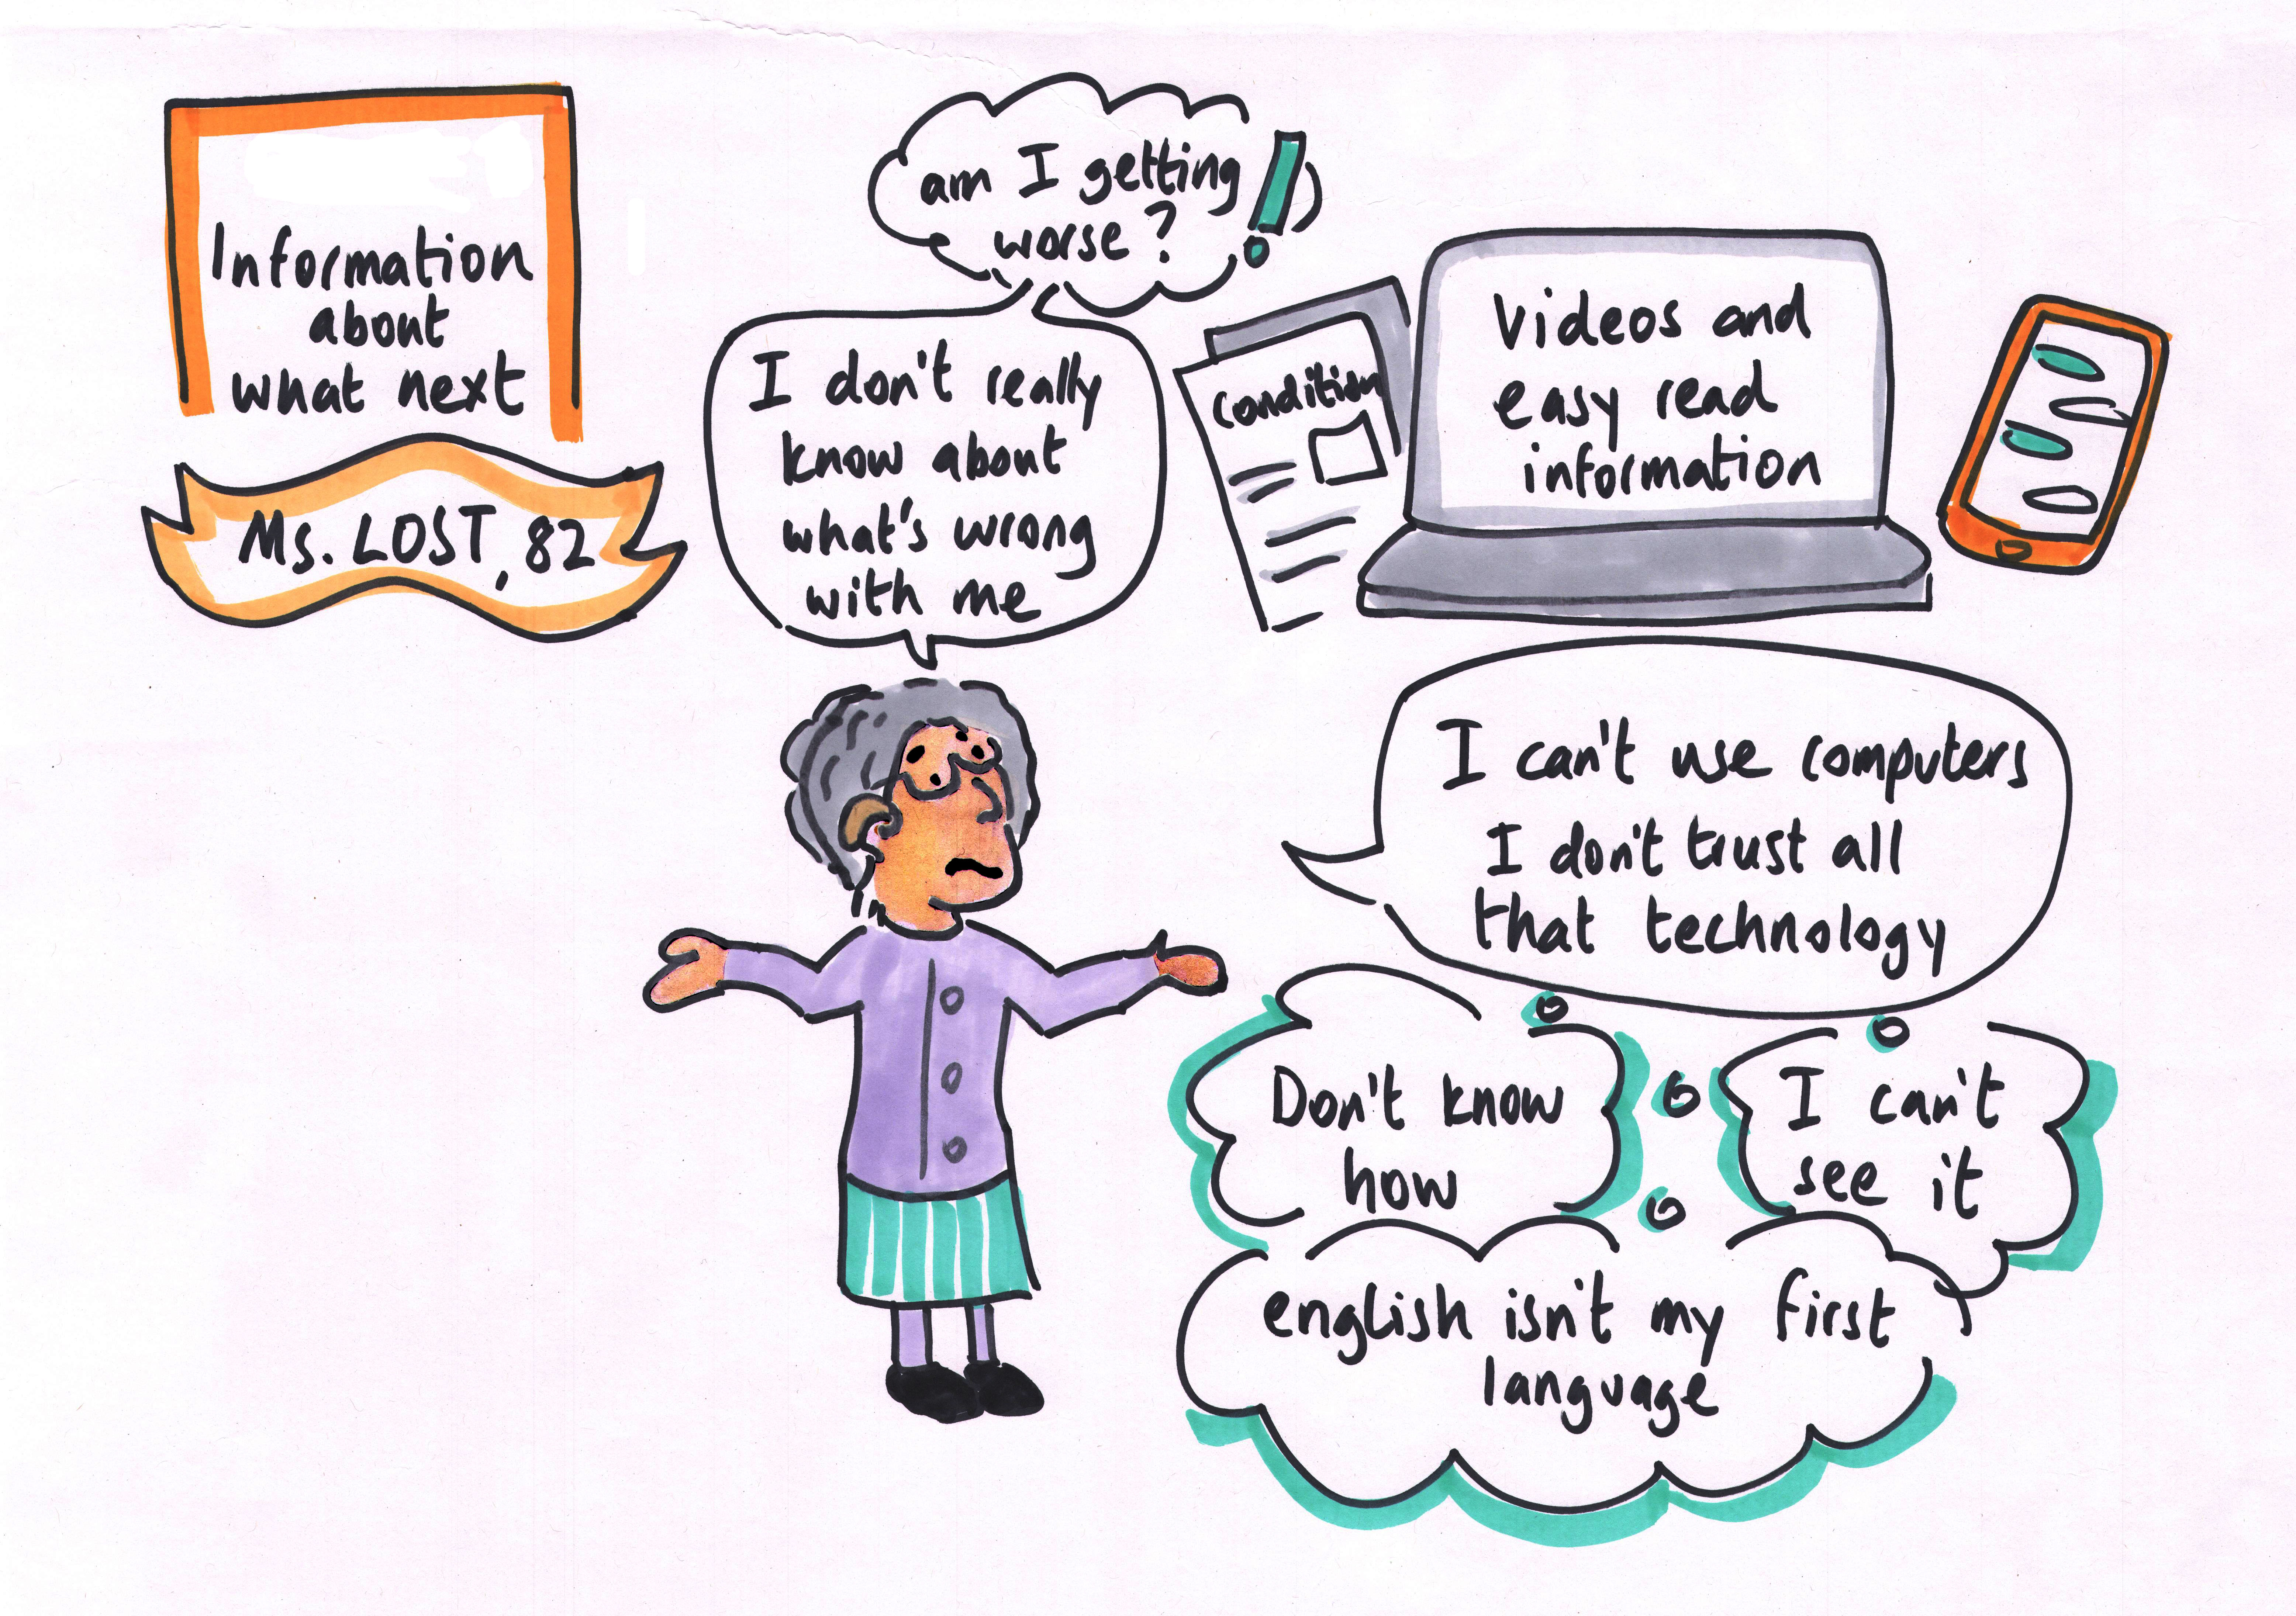 Information
about
what next
Ms. LOST, 82
am I getting
worse?!
I don't really
know about
what's wrong
with me
condition
Videos and
easy read
information
I can't use computers
I don't trust all
that technology
Don't know
how
I can't
see it
english isn't my first
language